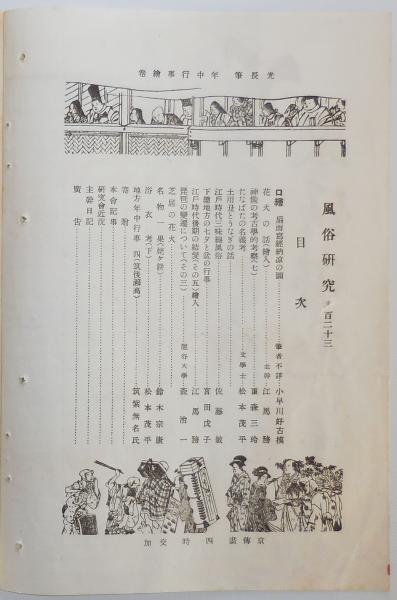 光長筆 年中行事繪卷
風俗研究 ヲ 百二十三
目次
口繪 扇面寫經納凉の圖 筆者不詳 小早川好古模
花火の話(繪入) 主幹 江馬務
神儀の考古學的考察(七) 重森三玲
たなばたの名義考 文學士 松本茂平
土用丑とうなぎの話
江戸時代三味線風俗 佐藤敏
下總地方の七夕と盆の行事 宮田戊子
江戸時代後期の結髮(その五)繪入 江馬務
琵琶の變遷について(その三) 龍谷大學 森治一
芝居の花火
名物一果(絃ケ餅) 鈴木宗康
浴衣考(下) 松本茂平
地方年中行事 四(筑後瀨高) 筑紫無名氏
寄贈
本會記事
研究會近況
主幹日記
廣告
京傳畫 四時交加